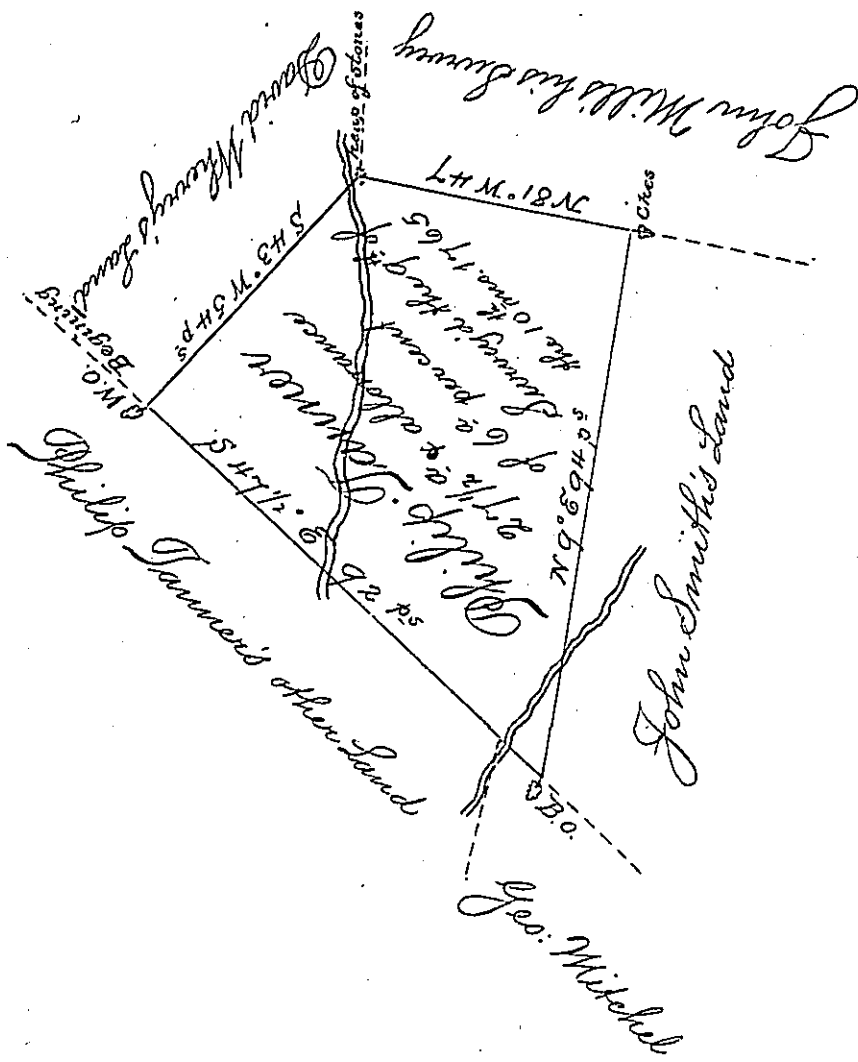 John Mills his Survey
David Wherry's Land
heap of stones
N 81° W 47
Ches
S 43° W 54 p.s
Begining
W.O.
Philip
Tanner
27 1/2 a & allowance
of 6 a percent
Survey'd the 9th of
the 10 mo. 1765
N 9° E 94 p.s
E 92 p.s
John Smith's Land
Philip Tanner's other Land
B.O.
Geo: Mitchel